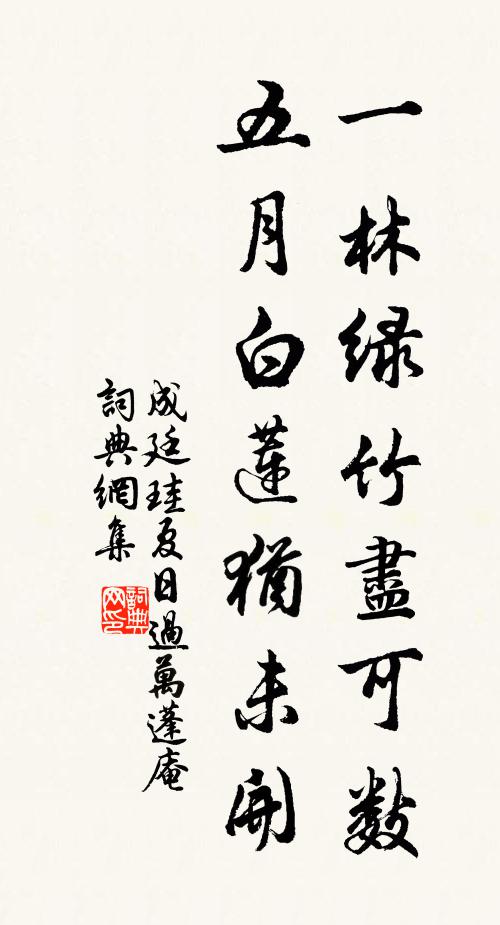 一林緑竹盡可數
五月白蓮猶未開
成廷珪夏日過萬蓬庵
詞典網集
詞典
网印